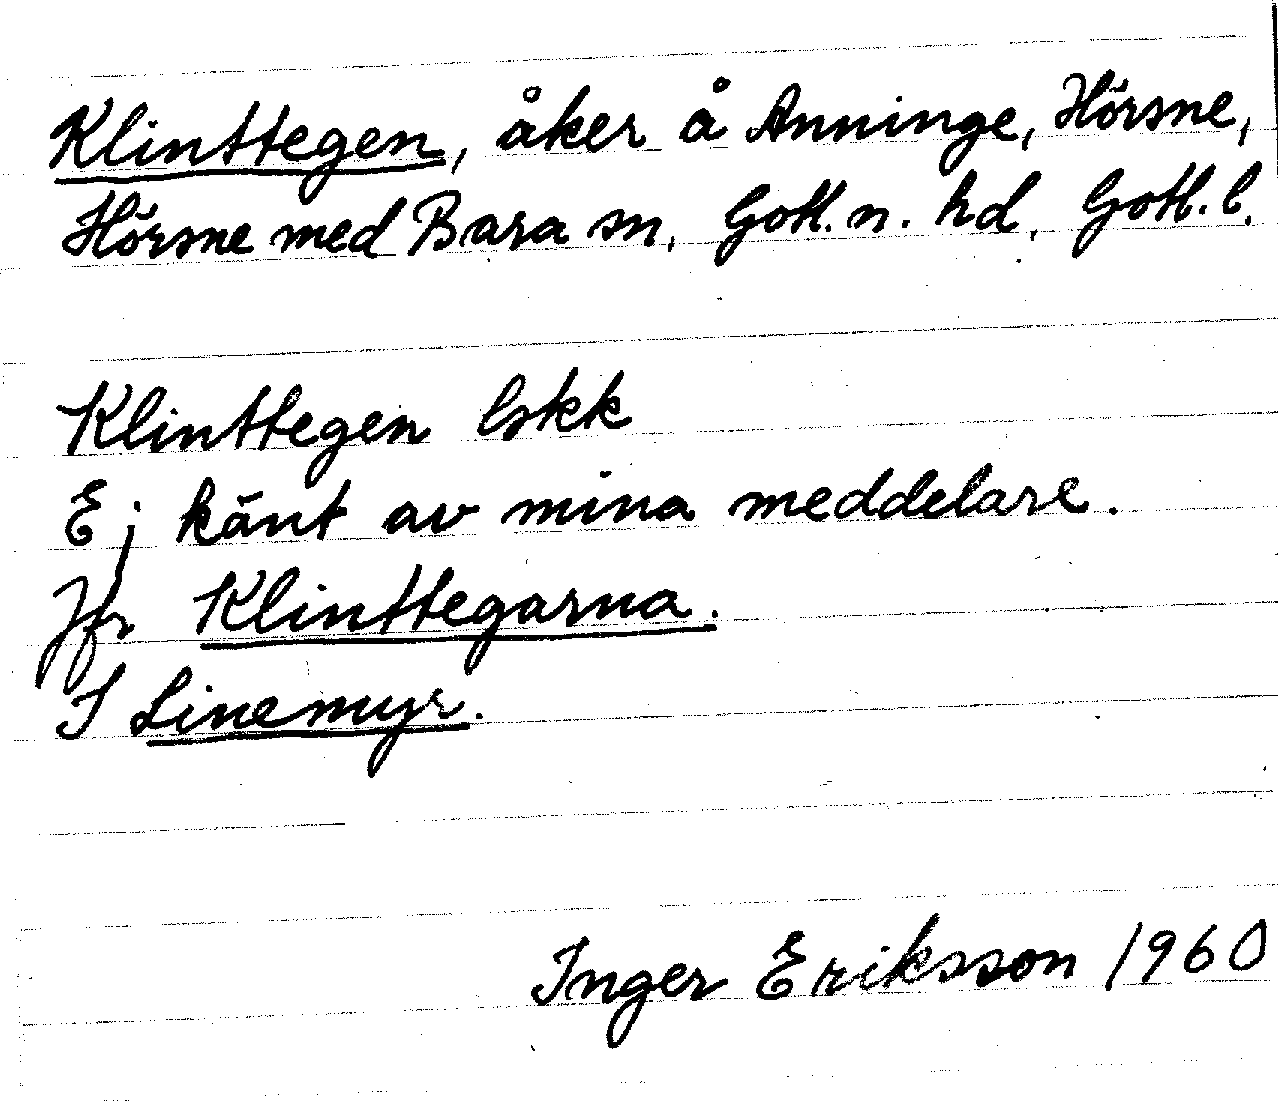 Klinttegen, åker å Anninge, Hörsne,
Hörsne med Bara sn, Gotl. n. hd, Gotl. l.
Klinttegen bskk
Ej känt av mina meddelare.
Jfr Klinttegarna.
I Linemyr.
Inger Eriksson 1960